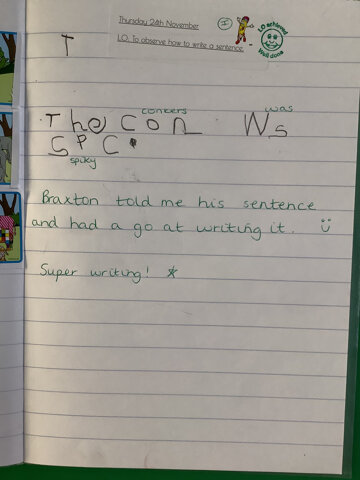 Thursday 24th November
LO. To observe how to write a sentence.
I
LO achieved
Well done
T
conkers was
The con Ws
SPC.
spiky
Braxton told me his sentence
and had a go at writing it.
Super writing!